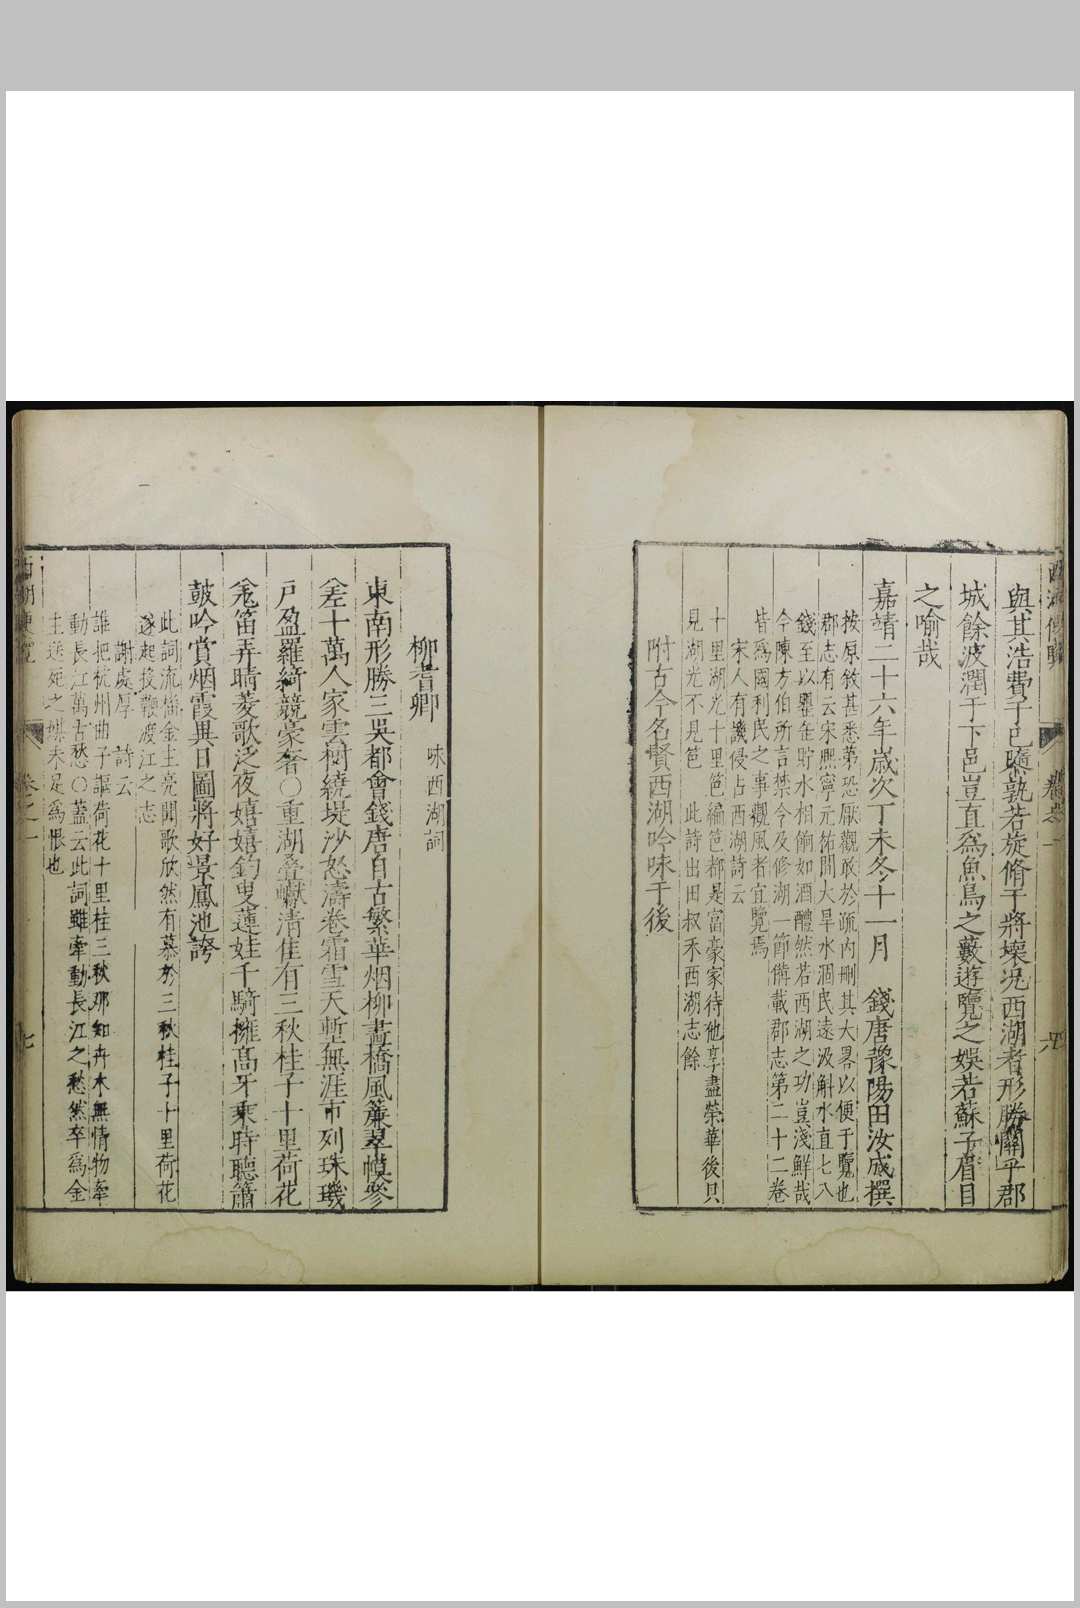 與其浩費于已隳孰若旋脩于將壞况西湖者形勝關乎郡
城餘波潤于下邑豈直爲魚鳥之藪遊覽之娛若蘇子眉目
之喻哉
嘉靖二十六年歲次丁未冬十一月 錢唐豫陽田汝成撰
按原敘甚悉第恐厭觀敢於疏內刪其大畧以便于覽也
郡志有云宋熙寧元祐間大旱水涸民遠汲斛水直七八
錢至以罌缶貯水相餉如酒醴然若西湖之功豈淺鮮哉
今陳方伯所言禁令及修湖一節備載郡志第二十二卷
皆爲國利民之事觀風者宜覽焉
宋人有譏侵占西湖詩云
十里湖光十里笆編笆都是富豪家待他享盡榮華後只
見湖光不見笆 此詩出田叔禾西湖志餘
附古今名賢西湖吟咏于後
卷之一
六
柳耆卿 咏西湖詞
東南形勝三吳都會錢唐自古繁華烟柳畫橋風簾翠幙參
差十萬人家雲樹繞堤沙怒濤卷霜雪天塹無涯市列珠璣
戶盈羅綺競豪奢〇重湖叠巘清佳有三秋桂子十里荷花
羌笛弄晴菱歌泛夜嬉嬉釣叟蓮娃千騎擁高牙乘時聽簫
鼓吟賞烟霞異日圖將好景鳳池誇
此詞流播金主亮聞歌欣然有慕於三秋桂子十里荷花
遂起投鞭渡江之志
謝處厚 詩云
誰把杭州曲子謳荷花十里桂三秋那知卉木無情物牽
動長江萬古愁〇蓋云此詞雖牽動長江之愁然卒爲金
主送死之媒未足爲恨也
卷之一
七